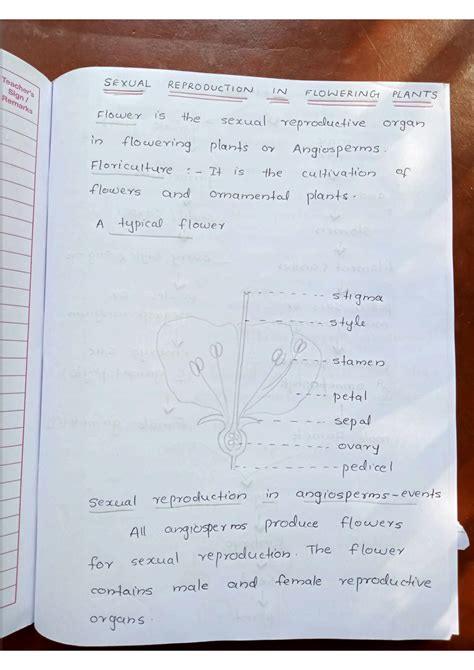 Teacher's
Sign /
Remarks
SEXUAL REPRODUCTION IN FLOWERING PLANTS
Flower is the sexual reproductive organ
in flowering plants or Angiosperms.
Floriculture :- It is the cultivation of
flowers and ornamental plants.
A typical flower
stigma
style
stamen
petal
sepal
ovary
pedicel
Sexual reproduction in angiosperms-events
All angiosperms produce flowers
for sexual reproduction. The flower
contains male and female reproductive
organs.